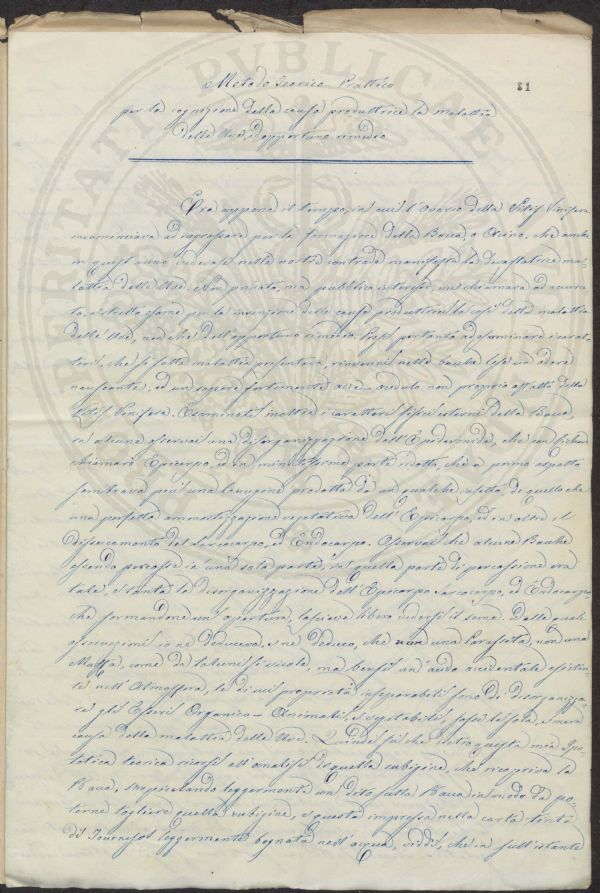 81
Metodo Teorico Prattico
per la cognizione della causa produttrice la malattia
delle Uve, ed opportuno rimedio
Era appena il tempo, in cui l'Ovario della Vitis Vinifera
incominciava ad ingrossare per la formazione della Bacca, o Acino, che anche
in quest'anno vedevasi nelle nostre contrade manifesta la devastatrice ma-
lattia delle Uve. Non privato, ma pubblico interesse mi chiamava ad accura-
to, e stretto esame per la invenzione della causa produttrice la così detta malattia
delle Uve, non che dell'opportuno rimedio. Presi pertanto ad esaminare i carat-
teri, che sì fatta malattia presentava, rinvenni nelle Bacche lese un odore
nauseante, ed un sapore fortemente acre-acidulo non proprio affatto della
Vitis Vinifera. Esaminati inoltre i caratteri fisici esterni della Bacca,
in alcune osservai una disorganizzazione dell'Epidermide, che un
chiamarà Epicarpo, ed in parte ridotta, che a primo aspetto
sembrava più una lanugine prodotta da un qualche insetto, di quello che
una perfetta vegetativa dell'Epicarpo, ed in altre il
disseccamento del Sarcocarpo, ed Endocarpo. Osservai che alcune Bacche
essendo percosse in una sola parte, in quella parte di percossione era
tale, e tanta la disorganizzazione dell'Epicarpo Sarcocarpo, ed Endocarpo,
che formandone un'apertura, lasciava libero vedersi il seme. Dalle quali
osservazioni io ne deduceva, e ne deduco, che non una Parassita, non una
Muffa, come da taluni si vuole, ma bensì un'acido accidentale esisten-
te nell'Atmosfera, le di cui proprietà inseparabili sono di disorganizza-
re gli Esseri Organico-Animali, e vegetabili, fosse la sola, e mera
causa della malattia delle Uve. Quindi si è che dietro questa mia Ipo-
tatica teorica ricorsi all'analisi di quella rubigine, che ricopriva la
Bacca, strisciando leggermente un dito sulla Bacca in modo da po-
terne togliere quella rubigine, e questa impressa nella carta tinta
di Tournesol leggermente bagnata nell'acqua, viddi, che in sull'istante